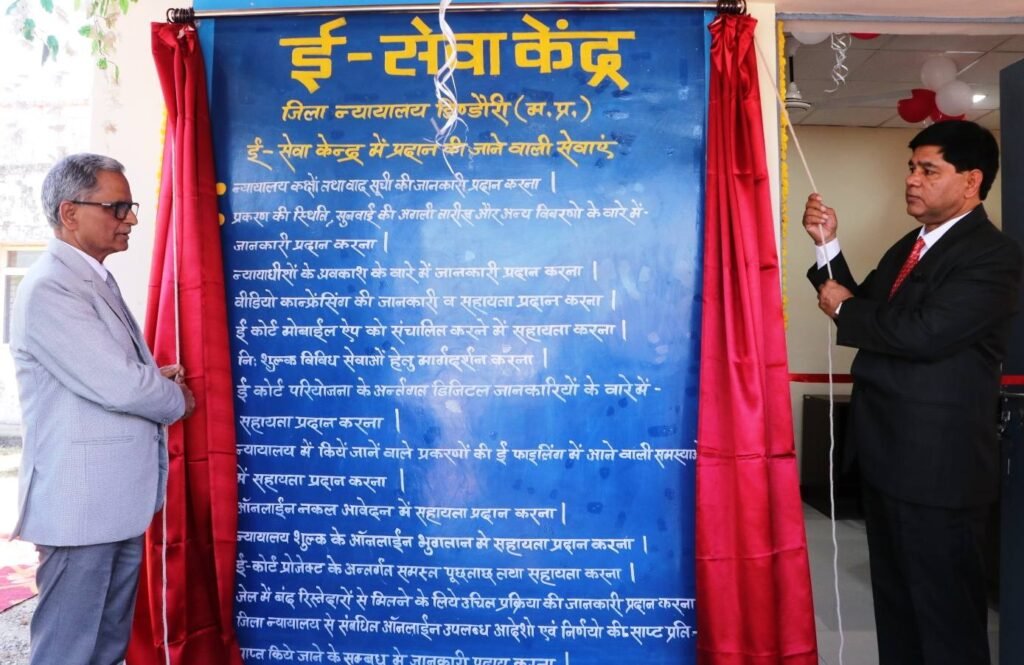 ई-सेवा केंद्र
जिला न्यायालय डिण्डौरी (म.प्र.)
ई- सेवा केन्द्र में प्रदान की जाने वाली सेवाएं
न्यायालय कक्षों तथा वाद सूची की जानकारी प्रदान करना |
प्रकरण की स्थिति, सुनवाई की अगली तारीख और अन्य विवरणो के वारे में-
जानकारी प्रदान करना |
न्यायाधीसों के अवकाश के वारे में जानकारी प्रदान करना |
वीडियो कान्फ्रेंसिंग की जानकारी व सहायता प्रदान करना |
ई कोर्ट मोबाईल ऐप को संचालित करने में सहायता करना |
नि: शुल्क विविध सेवाओं हेतु मार्गदर्शन करना |
ई कोर्ट परियोजना के अर्न्तगत डिजिटल जानकारियों के वारे में -
सहायता प्रदान करना |
न्यायालय में किये जानें वाले प्रकरणों की ई फाइलिंग में आने वाली समस्याओ
में सहायता प्रदान करना |
ऑनलाईन नकल आवेदन में सहायता प्रदान करना |
न्यायालय शुल्क के ऑनलाईन भुगतान मे सहायता प्रदान करना |
ई-कोर्ट प्रोजेक्ट के अन्तर्गत समस्त पूछताछ तथा सहायता करना |
जेल में बंद रिस्तेदारों से मिलने के लिये उचित प्रक्रिया की जानकारी प्रदान करना
जिला न्यायालय से संबंधित ऑनलाईन उपलब्ध आदेशो एवं निर्णयो की साफ्ट प्रति-
प्राप्त किये जाने के सम्बन्ध मे जानकारी प्रदाय करना |